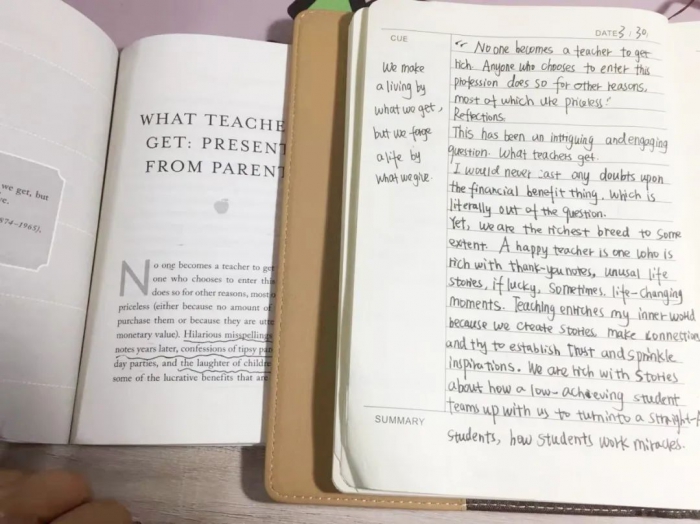 we get, but
ve.
874–1965),
WHAT TEACHE
GET: PRESENT
FROM PARENT
No one becomes a teacher to get
one who chooses to enter this
does so for other reasons, most o
priceless (either because no amount of
purchase them or because they are utte
monetary value). Hilarious misspelling
notes years later, confessions of tipsy par
day parties, and the laughter of childre
some of the lucrative benefits that are
CUE
We make
a living by
what we get,
but we forge
a life by
what we give.
DATE 3 / 30
"No one becomes a teacher to get
rich. Anyone who chooses to enter this
profession does so for other reasons,
most of which are priceless!
Reflections:
This has been an intriguing and engaging
question. What teachers get.
I would never cast any doubts upon
the financial benefit thing, which is
literally out of the question.
Yet, we are the richest breed to some
extent. A happy teacher is one who is
rich with thank-you notes, unusal life
stories, if lucky, sometimes, life-changing
moments. Teaching enriches my inner world
because we create stories, make connection
and try to establish trust and sprinkle
inspirations. We are rich with stories
about how a low-achieving student
teams up with us to turn into a straight-A
students, how students work miracles.
SUMMARY